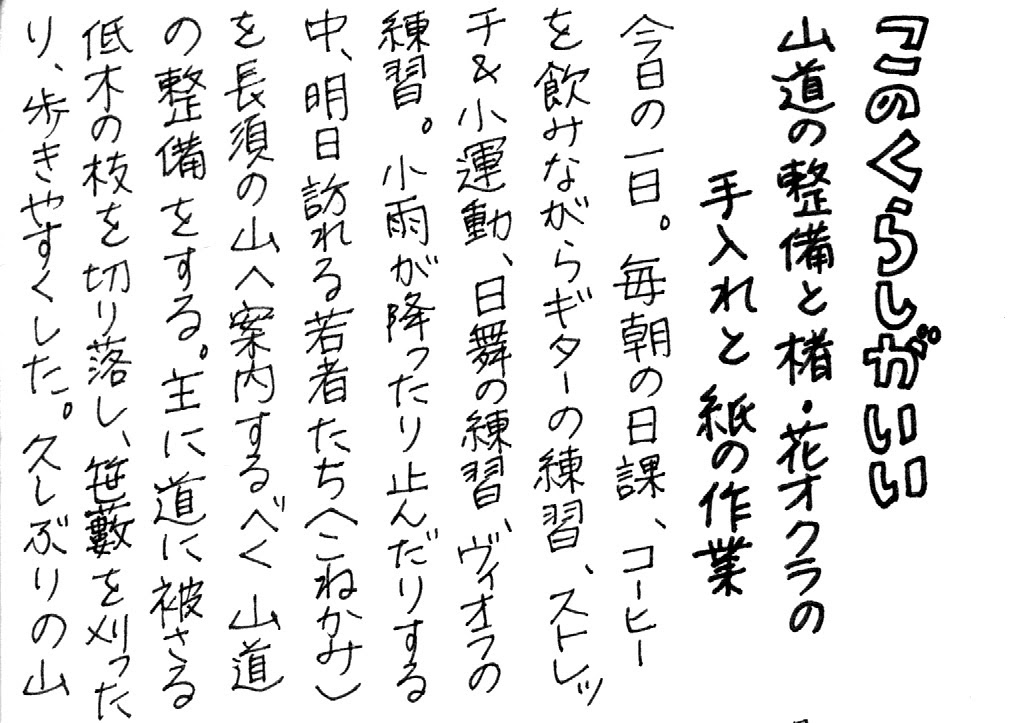 このくらしがいい
山道の整備と楮・花オクラの
手入れと紙の作業
今日の一日。毎朝の日課、コーヒー
を飲みながらギターの練習、ストレッ
チ&小運動、日舞の練習、ヴィオラの
練習。小雨が降ったり止んだりする
中、明日訪れる若者たち(こねかみ)
を長須の山へ案内するべく山道
の整備をする。主に道に被さる
低木の枝を切り落し、笹藪を刈った
り、歩きやすくした。久しぶりの山